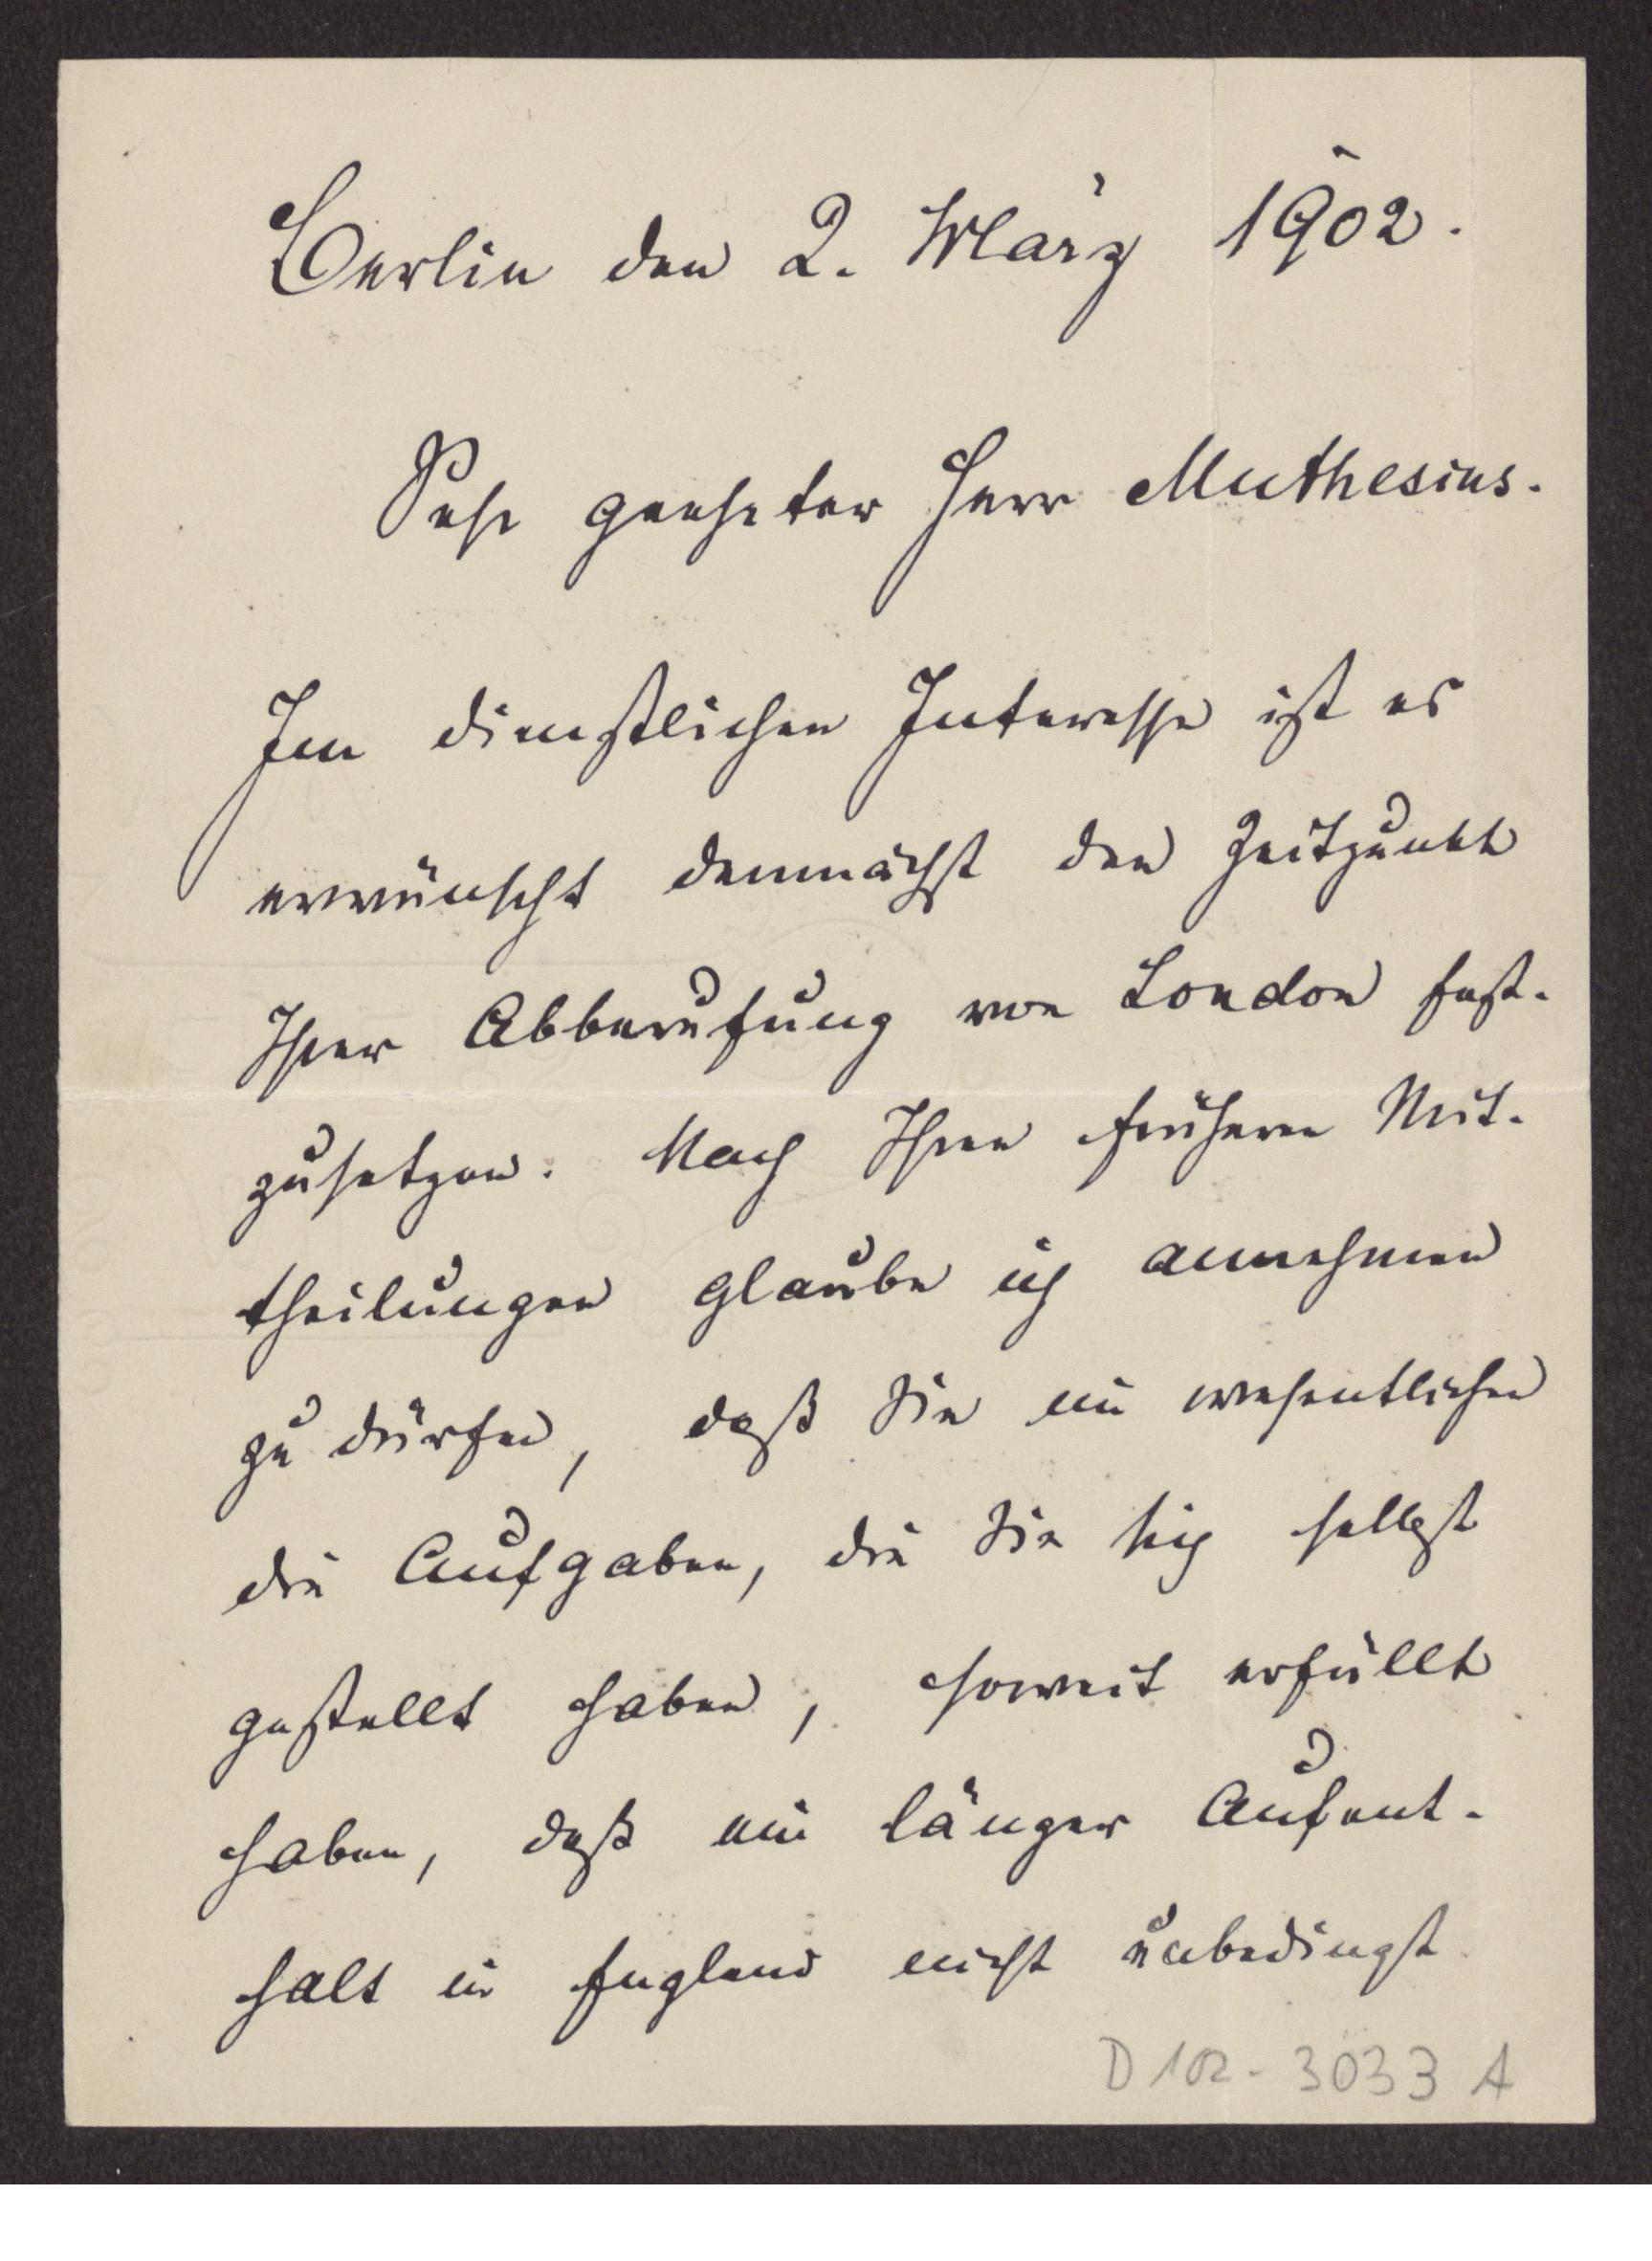 Berlin den 2. März 1902.
Sehr geehrter Herr Muthesius.
Im dienstlichen Interesse ist es
erwünscht demnächst den Zeitpunkt
Ihrer Abberufung von London fest-
zusetzen. Nach Ihren früheren Mit-
theilungen glaube ich annehmen
zu dürfen, daß Sie im wesentlichen
die Aufgaben, die Sie sich selbst
gestellt haben, soweit erfüllt
haben, daß ein länger Aufent-
halt in England nicht unbedingt
D 102-3033 A